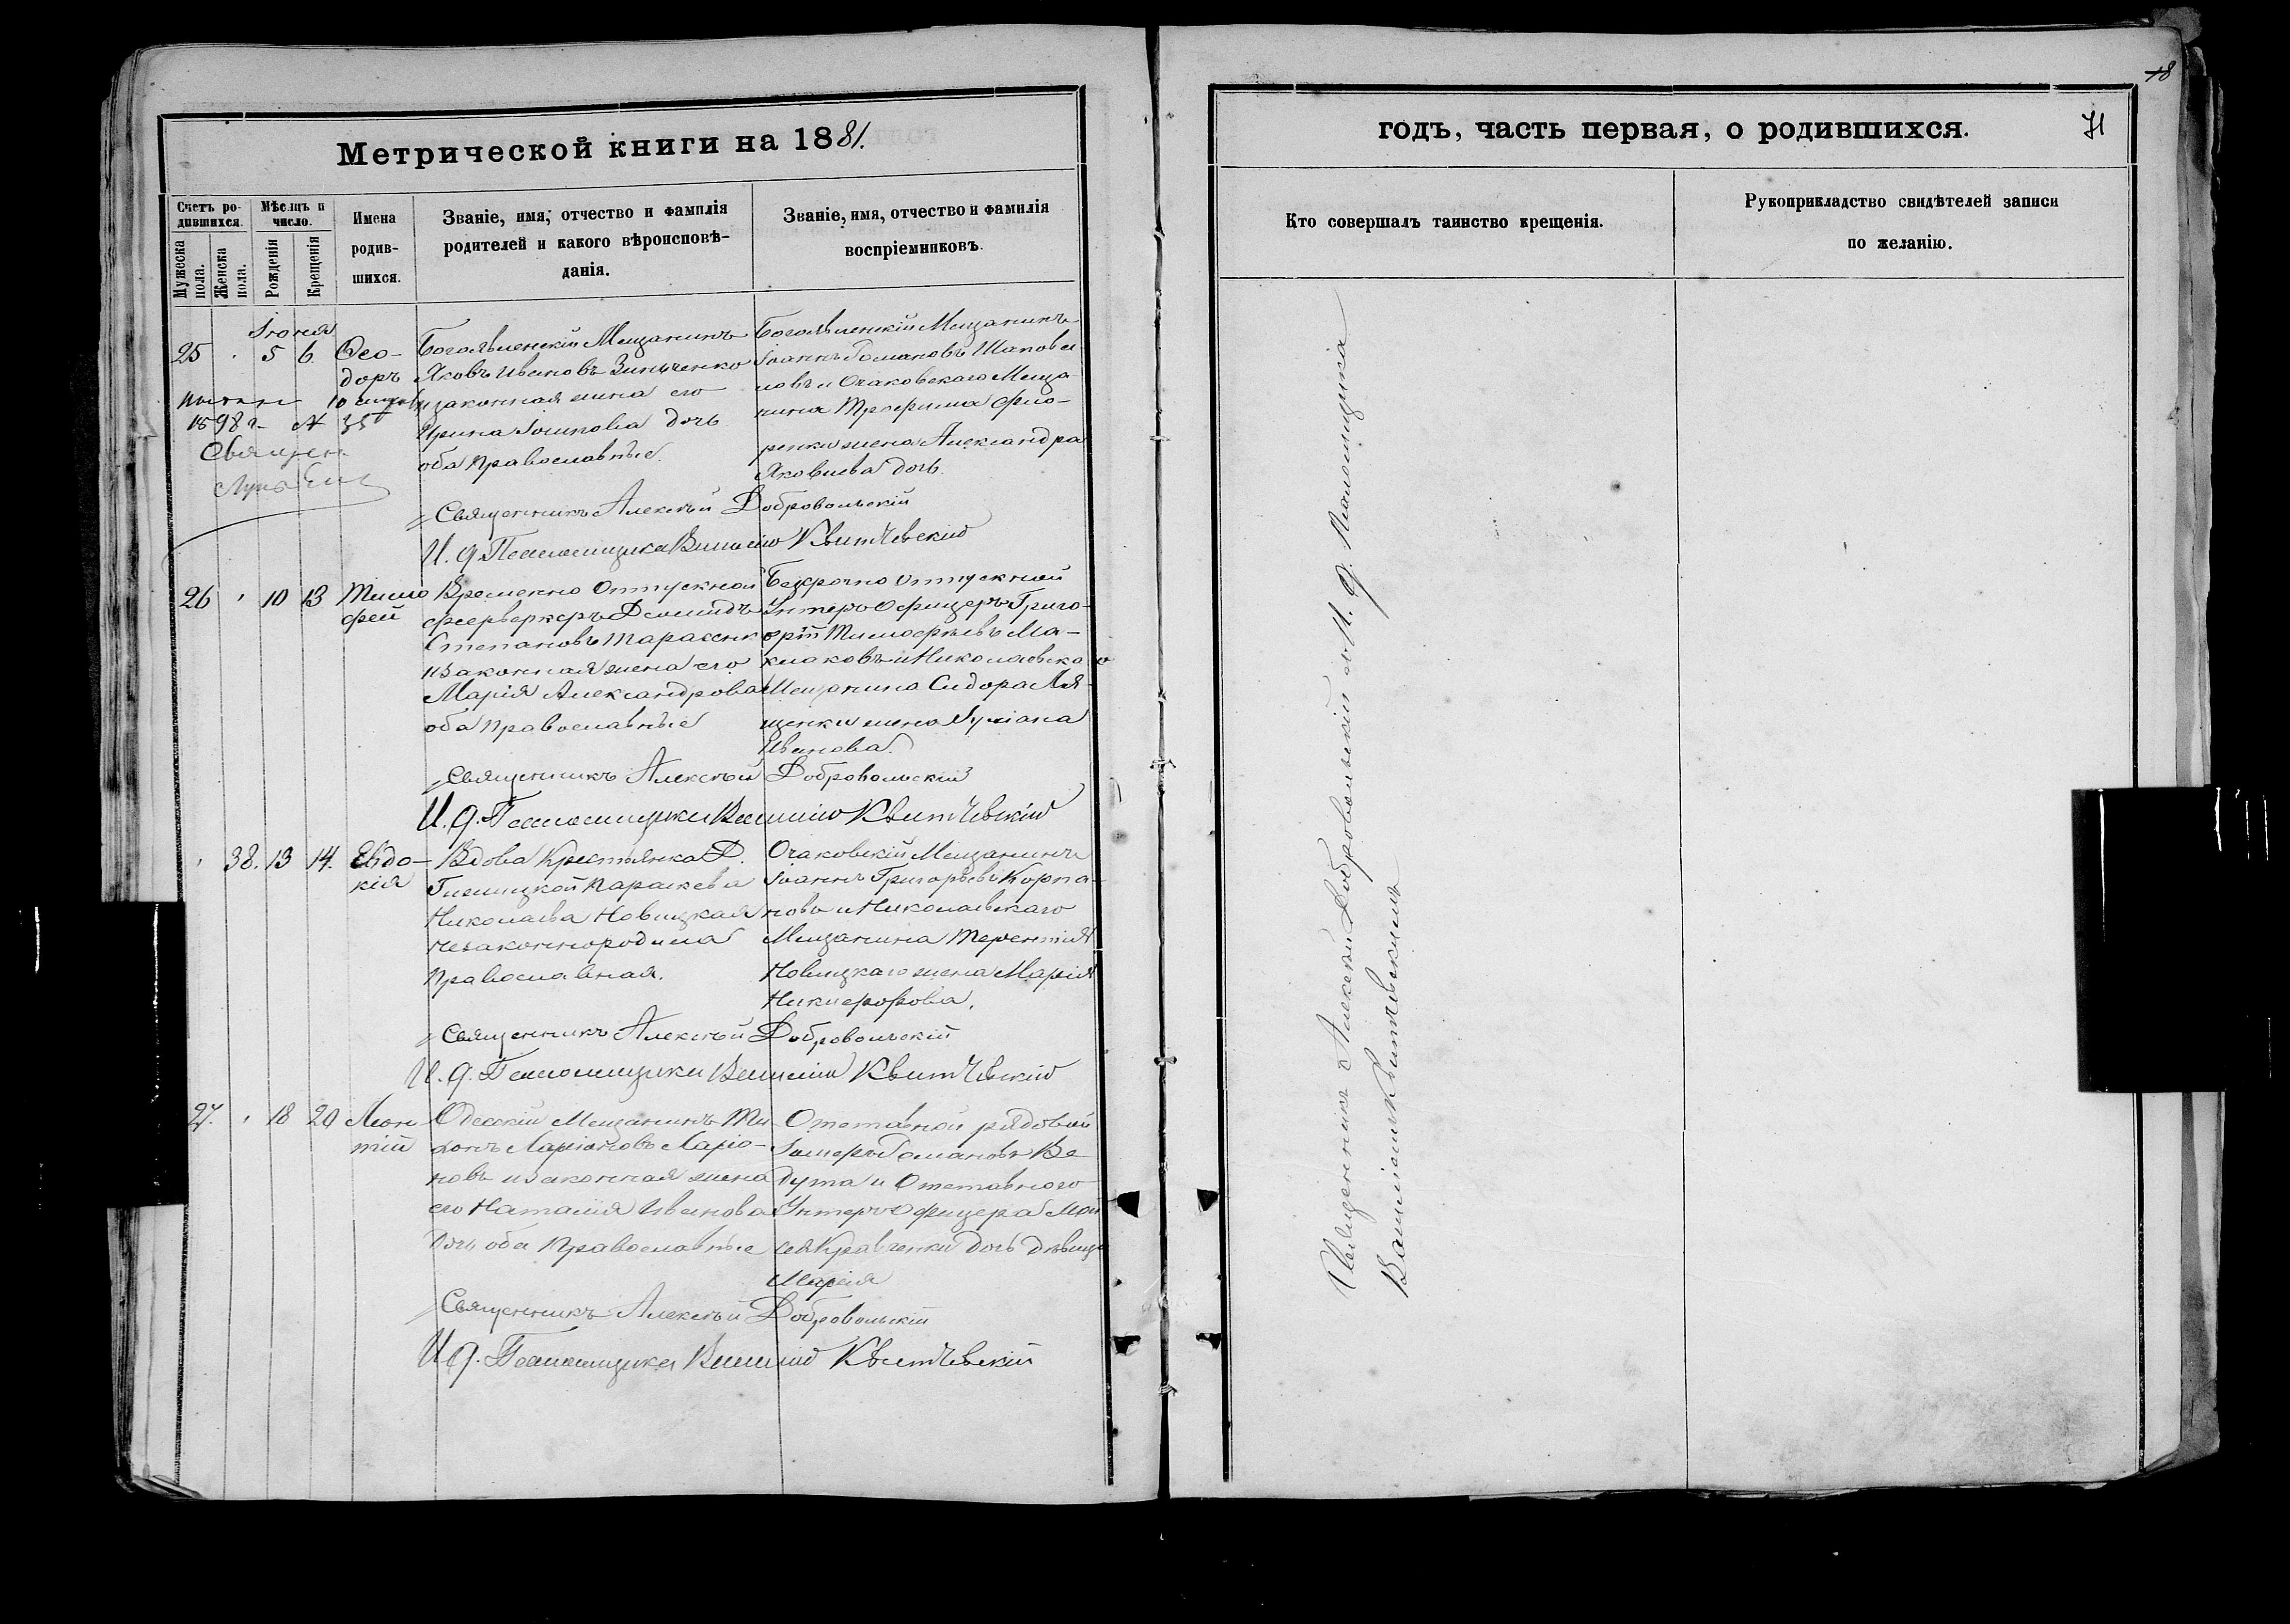 Метрической книги на 1881.
Счетъ ро-
дившихся.
Мѣсяцъ и
число.
Мужеска
пола.
Женска
пола.
Рожденія
Крещенія
Имена
родив-
шихся.
Званіе, имя, отчество и фамилія
родителей и какого вѣроисповѣ-
данія.
Званіе, имя, отчество и фамилія
воспріемниковъ.
Іюня
25 5 6 Ѳео-
доръ
10
1898 г. № 35
Священ
Богоявленскій Мещанинъ
Яковъ Ивановъ Зинченко
и законная жена его
Ирина Іосипова дочь
оба Православные.
Богоявленскій Мещанинъ
Іоаннъ Романовъ Шапова-
ловъ и Очаковскаго Меща
нина Трофима Фло-
ренки жена Александра
Яковлева дочь.
Священникъ Алексѣй Добровольскій
И. д. Псаломщика Василій Квитчевскій
26 10 13 Тимо
фей
Временно Отпускной
феерверкеръ Демидъ
Степановъ Тарасенк
и Законная жена его
Марія Александрова
оба Православные
Безсрочно отпускной
Унтеръ Офицеръ Григо-
рій Тимофѣевъ Ма-
клаковъ и Николаевскаго
Мещанина Сидора Ля-
щенки жена Іуліана
Иванова.
Священникъ Алексѣй Добровольскій
И. д. Псаломщика Василій Квитчевскій
38. 13 14. Евдо-
кія
Вдова Крестьянка Д.
Параскева
Николаева Новицкая
незаконнородила
Православная.
Очаковскій Мещанинъ
Іоаннъ Григорьевъ Корпа-
новъ и Николаевскаго
Мещанина Терентія
Новицкаго жена Марія
Никифорова.
Священникъ Алексѣй Добровольскій
И. д. Псаломщика Василій Квитчевскій
27. 18 20 Леон
тій
Одесскій Мещанинъ Ти
хонъ Ларіоновъ Ларіо-
новъ и законная жена
его Наталія Иванова
дочь оба Православные
Отставной рядовой
Романовъ Ве
дута и Отставного
Унтеръ Офицера Мои
сея Кравченки дочь дѣвица
Марія
Священникъ Алексѣй Добровольскій
И. д. Псаломщика Василій Квитчевскій
18
годъ, часть первая, о родившихся.
71
Кто совершалъ таинство крещенія.
Рукоприкладство свидѣтелей записи
по желанію.
Священникъ Алексѣй Добровольскій съ И. д. Псаломщика
Василіемъ Квитчевскимъ